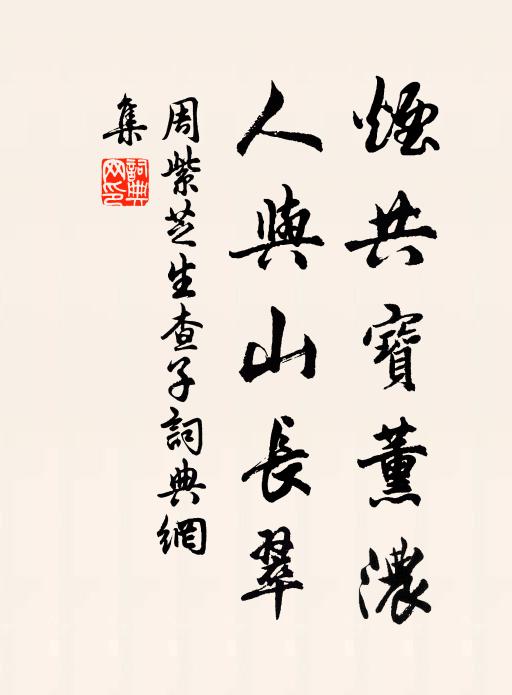 煙共寶薰濃
人與山長翠
周紫芝生查子詞典網
集
詞典
网印